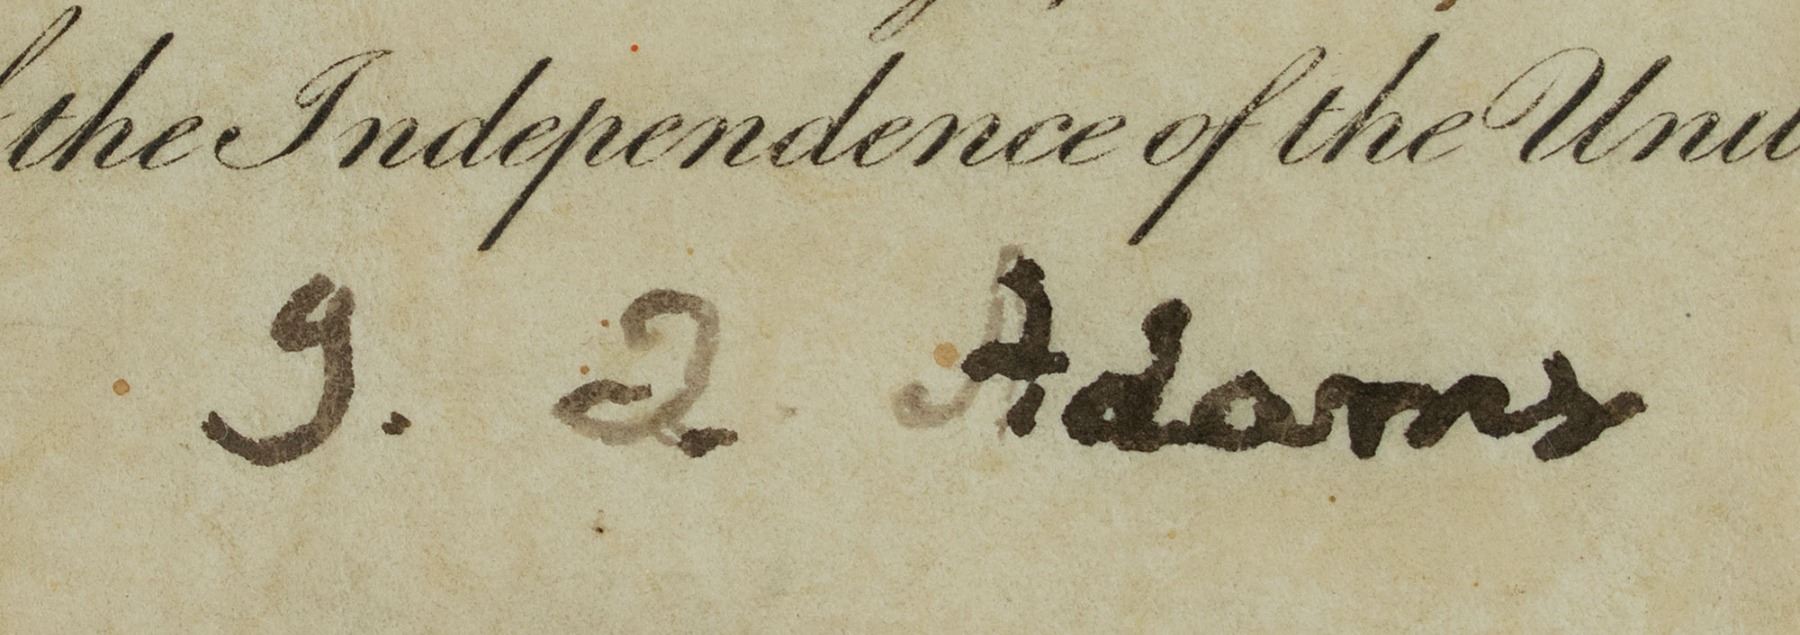 the Independence of the
J. Q. Adams